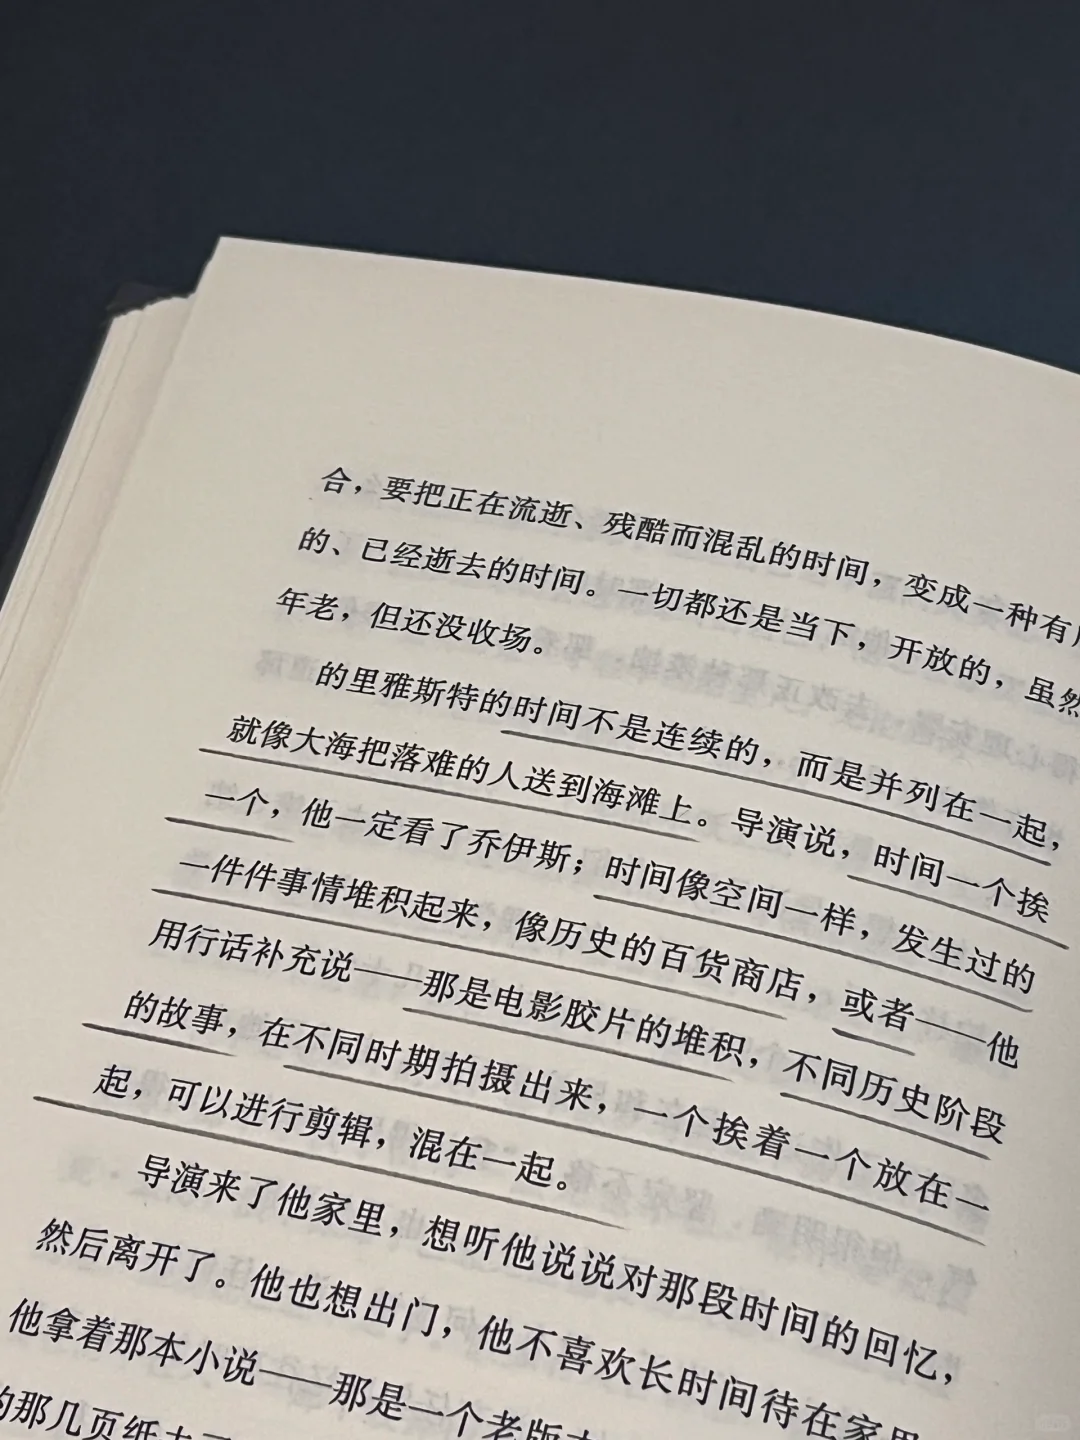 合，要把正在流逝、残酷而混乱的时间，变成一种有
的、已经逝去的时间。一切都还是当下，开放的，虽然
年老，但还没收场。
的里雅斯特的时间不是连续的，而是并列在一起，
就像大海把落难的人送到海滩上。导演说，时间一个挨
一个，他一定看了乔伊斯；时间像空间一样，发生过的
一件件事情堆积起来，像历史的百货商店，或者——他
用行话补充说——那是电影胶片的堆积，不同历史阶段
的故事，在不同时期拍摄出来，一个挨着一个放在一
起，可以进行剪辑，混在一起。
导演来了他家里，想听他说说对那段时间的回忆，
然后离开了。他也想出门，他不喜欢长时间待在家里
他拿着那本小说——那是一个老版本
的那几页纸